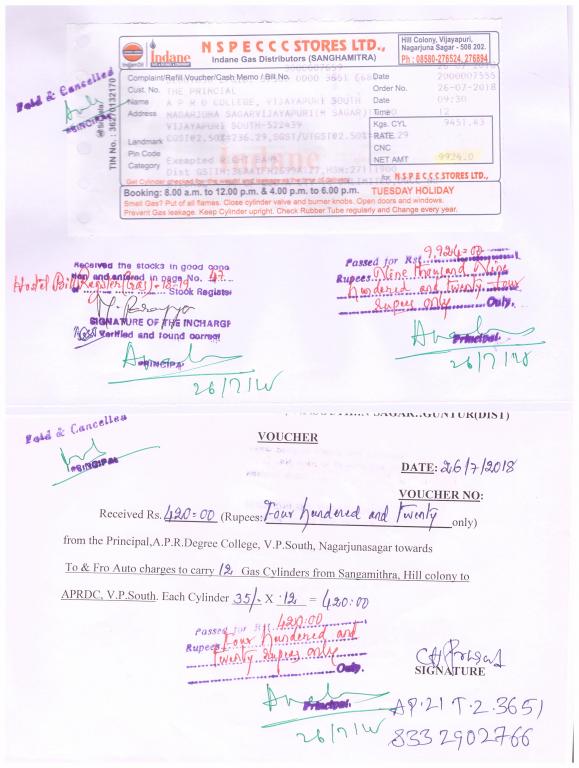 NSPECCC STORES LTD.,
Indane Gas Distributors (SANGHAMITRA)
Hill Colony, Vijayapuri,
Nagarjuna Sagar - 508 202.
Ph : 08580-276524, 276894
IndianOil
Indane
Paid & Cancelled
PRINCIPAL
TIN No. : 36270132170
Complaint/Refill Voucher/Cash Memo / Bill No.
Date 2000007555
Cust. No. THE PRINCIAL
Order No. 26-07-2018
Name A P R D COLLEGE, VIJAYAPURI SOUTH
Date 09:30
Address NAGARJUNA SAGAR,VIJAYAPURI(M SAGAR)
Time 12
VIJAYAPURI SOUTH-522439
Kgs. CYL 9451.43
Landmark CGST@2.50%=236.29, SGST/UTGST@2.50%
RATE .29
Pin Code
CNC
Category Exempted
NET AMT 9924.0
Get Cylinder checked for the weight and leakage at the time of delivery
for NSPECCC STORES LTD.,
Booking: 8.00 a.m. to 12.00 p.m. & 4.00 p.m. to 6.00 p.m. TUESDAY HOLIDAY
Smell Gas? Put of all flames. Close cylinder valve and burner knobs. Open doors and windows.
Prevent Gas leakage. Keep Cylinder upright. Check Rubber Tube regularly and Change every year.
Received the stocks in good
and entered in page No. 47
Hostel Bill Register (Gas)-18-19
Stock Register
SIGNATURE OF THE INCHARGE
Verified and found correct
PRINCIPAL
26/7/18
Passed for Rs. 9,924=00
Rupees Nine thousand Nine
hundered and twenty four
rupees only Only.
Principal.
26/7/18
SAGAR..GUNTUR(DIST)
Paid & Cancelled
PRINCIPAL
VOUCHER
DATE: 26/7/2018
VOUCHER NO:
Received Rs. 420=00 (Rupees: Four hundered and twenty only)
from the Principal,A.P.R.Degree College, V.P.South, Nagarjunasagar towards
To & Fro Auto charges to carry 12 Gas Cylinders from Sangamithra, Hill colony to
APRDC, V.P.South. Each Cylinder 35/- X 12 = 420:00
Passed for Rs. 420:00
Rupees Four hundered and
twenty rupees only
Only.
SIGNATURE
Principal.
26/7/18
AP.21 T.2.3651
8332902766